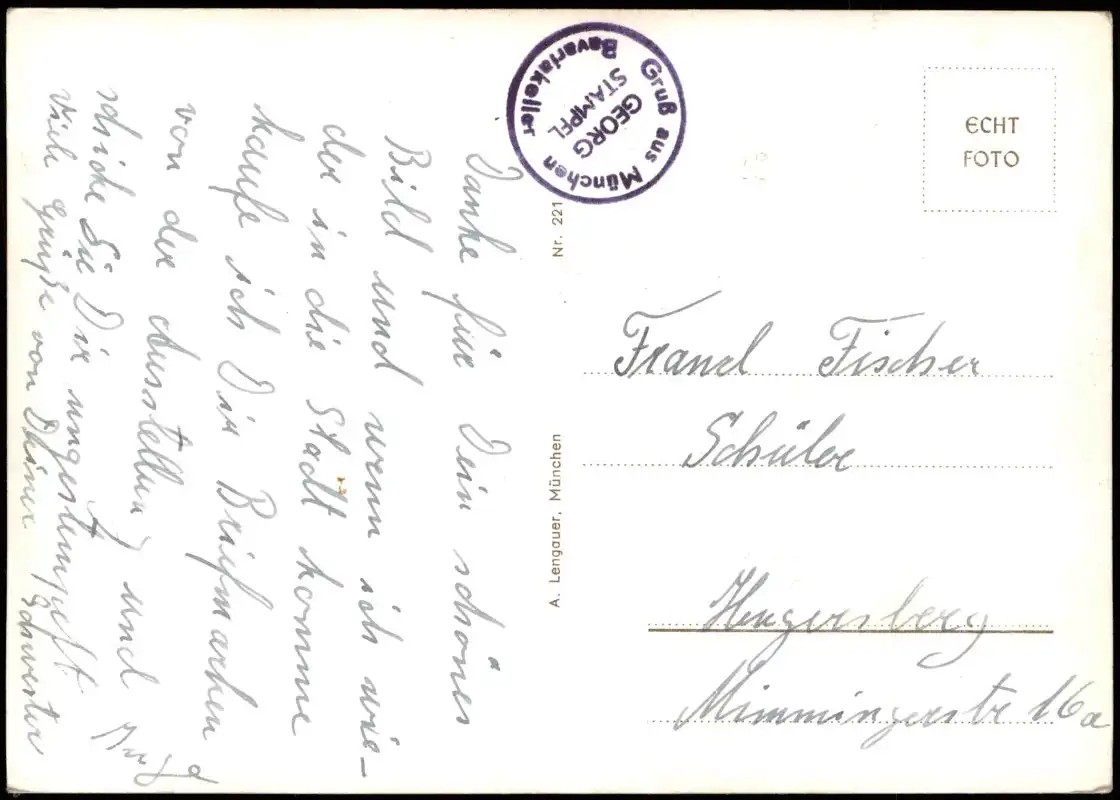 Danke für Dein schönes
Bild und wenn ich wie-
der in die Stadt komme
kaufe ich Dir Briefmarken
von der Ausstellung und
schicke Sie Dir ungestempelt
viele Grüße von Deiner Schwester
Gruß aus München
Bavariakeller
GEORG
STAMPFL
Nr. 221
A. Lengauer, München
ECHT
FOTO
Franzl Fischer
Schüler
Hengersberg
Mimmingerstr 16a